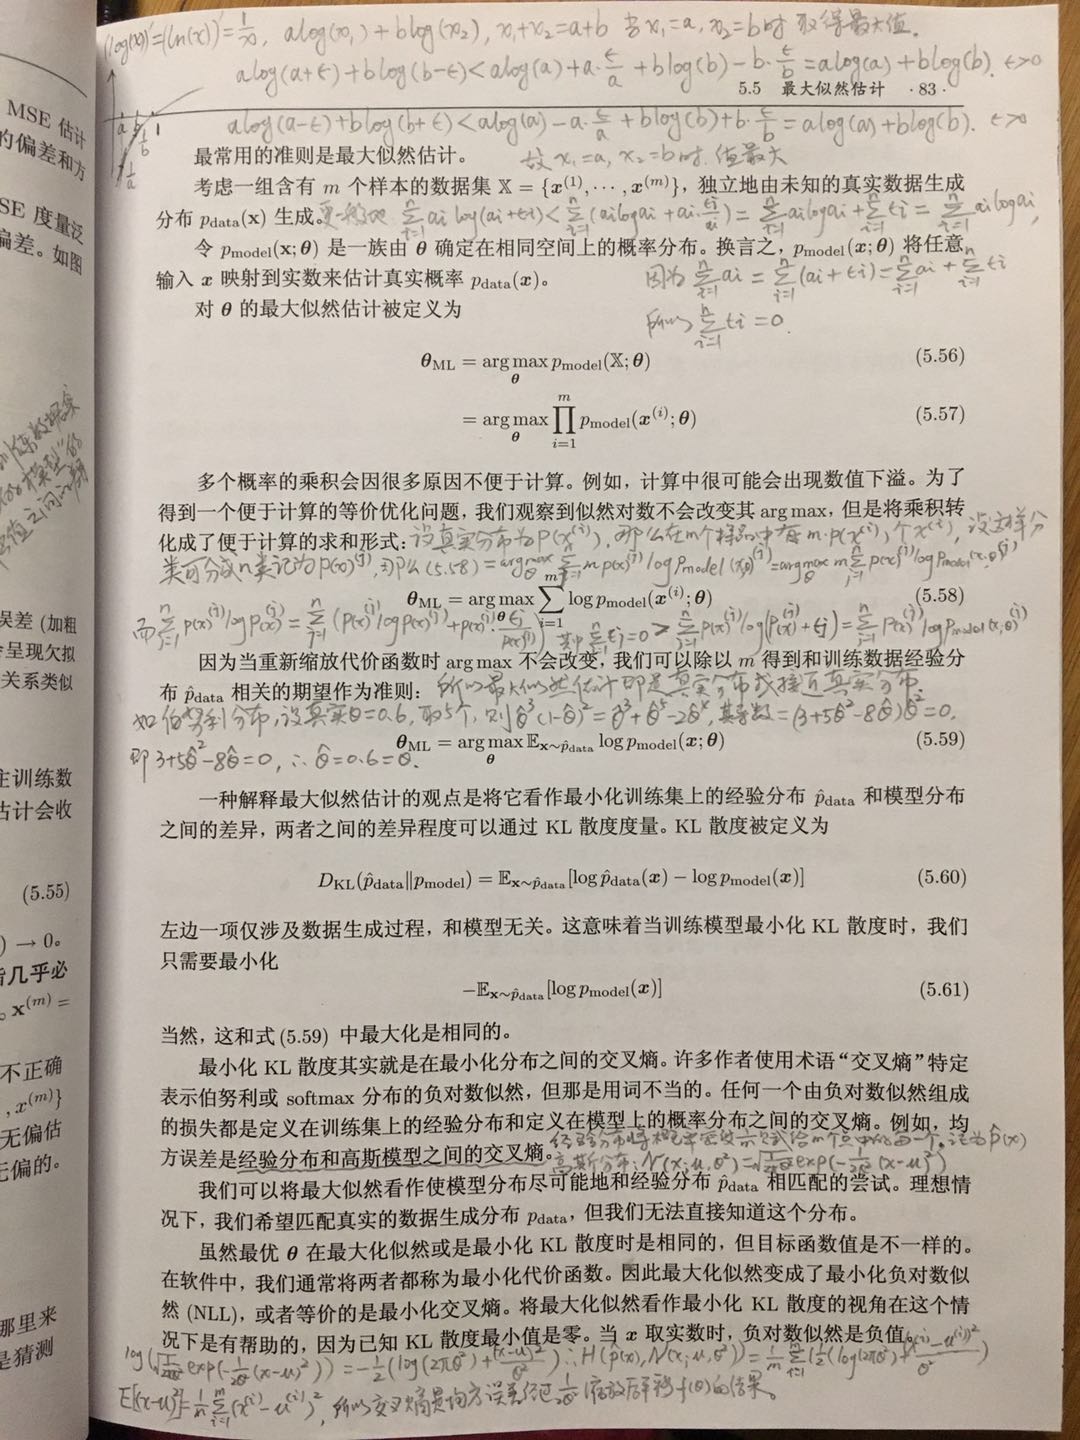 (log(x))'=(ln(x))'=1/x, alog(x₁)+blog(x₂), x₁+x₂=a+b 当x₁=a, x₂=b时 取得最大值.
alog(a+ε)+blog(b-ε)<alog(a)+a·ε/a+blog(b)-b·ε/b=alog(a)+blog(b). ε>0
5.5 最大似然估计 ·83·
alog(a-ε)+blog(b+ε)<alog(a)-a·ε/a+blog(b)+b·ε/b=alog(a)+blog(b). ε>0
最常用的准则是最大似然估计。
故x₁=a, x₂=b时, 值最大
考虑一组含有 m 个样本的数据集 𝕏 = {x⁽¹⁾, ⋯, x⁽ᵐ⁾}，独立地由未知的真实数据生成
分布 p_data(x) 生成。
更一般地 Σᵢ₌₁ⁿ ai log(ai+εi)<Σᵢ₌₁ⁿ(ailogai+ai·εi/ai)=Σᵢ₌₁ⁿailogai+Σᵢ₌₁ⁿεi=Σᵢ₌₁ⁿailogai,
令 p_model(x; θ) 是一族由 θ 确定在相同空间上的概率分布。换言之，p_model(x; θ) 将任意
输入 x 映射到实数来估计真实概率 p_data(x)。
因为Σᵢ₌₁ⁿai=Σᵢ₌₁ⁿ(ai+εi)=Σᵢ₌₁ⁿai+Σᵢ₌₁ⁿεi
对 θ 的最大似然估计被定义为
所以Σᵢ₌₁ⁿεi=0.
θ_ML = arg max_θ p_model(𝕏; θ) (5.56)
= arg max_θ ∏ᵢ₌₁ᵐ p_model(x⁽ⁱ⁾; θ) (5.57)
多个概率的乘积会因很多原因不便于计算。例如，计算中很可能会出现数值下溢。为了
得到一个便于计算的等价优化问题，我们观察到似然对数不会改变其 arg max，但是将乘积转
化成了便于计算的求和形式：
设真实分布为P(x⁽ⁱ⁾), 那么在m个样品中有m·P(x⁽ⁱ⁾)个x⁽ⁱ⁾, 设这样分
类可分成n类记为P(x)⁽ʲ⁾, 那么(5.58)=argmax_θ Σ m P(x)⁽ʲ⁾ log P_model(x,θ)⁽ʲ⁾=argmax_θ mΣP(x)⁽ʲ⁾logP_model(x,θ)⁽ʲ⁾
θ_ML = arg max_θ Σᵢ₌₁ᵐ log p_model(x⁽ⁱ⁾; θ) (5.58)
因为当重新缩放代价函数时 arg max 不会改变，我们可以除以 m 得到和训练数据经验分
布 p̂_data 相关的期望作为准则：
所以最大似然估计即是真实分布或接近真实分布.
如伯努利分布, 设真实θ=0.6, 取5个, 则θ̂³(1-θ̂)²=θ̂³+θ̂⁵-2θ̂⁴, 其导数=(3+5θ̂²-8θ̂)θ̂²=0.
θ_ML = arg max_θ 𝔼_x∼p̂_data log p_model(x; θ) (5.59)
即3+5θ̂²-8θ̂=0, ∴θ̂=0.6=θ.
一种解释最大似然估计的观点是将它看作最小化训练集上的经验分布 p̂_data 和模型分布
之间的差异，两者之间的差异程度可以通过 KL 散度度量。KL 散度被定义为
D_KL(p̂_data‖p_model) = 𝔼_x∼p̂_data[log p̂_data(x) − log p_model(x)] (5.60)
左边一项仅涉及数据生成过程，和模型无关。这意味着当训练模型最小化 KL 散度时，我们
只需要最小化
−𝔼_x∼p̂_data[log p_model(x)] (5.61)
当然，这和式 (5.59) 中最大化是相同的。
最小化 KL 散度其实就是在最小化分布之间的交叉熵。许多作者使用术语“交叉熵”特定
表示伯努利或 softmax 分布的负对数似然，但那是用词不当的。任何一个由负对数似然组成
的损失都是定义在训练集上的经验分布和定义在模型上的概率分布之间的交叉熵。例如，均
方误差是经验分布和高斯模型之间的交叉熵。
经验分布将概率密度1/m赋给m个点中的每一个, 记为P̂(x)
高斯分布: N(x;μ,σ²)=√(1/2πσ²)exp(-1/2σ²(x-μ)²)
我们可以将最大似然看作使模型分布尽可能地和经验分布 p̂_data 相匹配的尝试。理想情
况下，我们希望匹配真实的数据生成分布 p_data，但我们无法直接知道这个分布。
虽然最优 θ 在最大化似然或是最小化 KL 散度时是相同的，但目标函数值是不一样的。
在软件中，我们通常将两者都称为最小化代价函数。因此最大化似然变成了最小化负对数似
然 (NLL)，或者等价的是最小化交叉熵。将最大化似然看作最小化 KL 散度的视角在这个情
况下是有帮助的，因为已知 KL 散度最小值是零。当 x 取实数时，负对数似然是负值
E[(x-μ)²]=1/m Σᵢ₌₁ᵐ(x⁽ⁱ⁾-μ⁽ⁱ⁾)², 所以交叉熵是均方误差经过
MSE 估计
的偏差和方
SE 度量泛
偏差。如图
误差 (加粗
会呈现欠拟
关系类似
主训练数
估计会收
(5.55)
) → 0。
皆几乎必
x⁽ᵐ⁾ =
不正确
, x⁽ᵐ⁾}
无偏估
无偏的。
那里来
是猜测